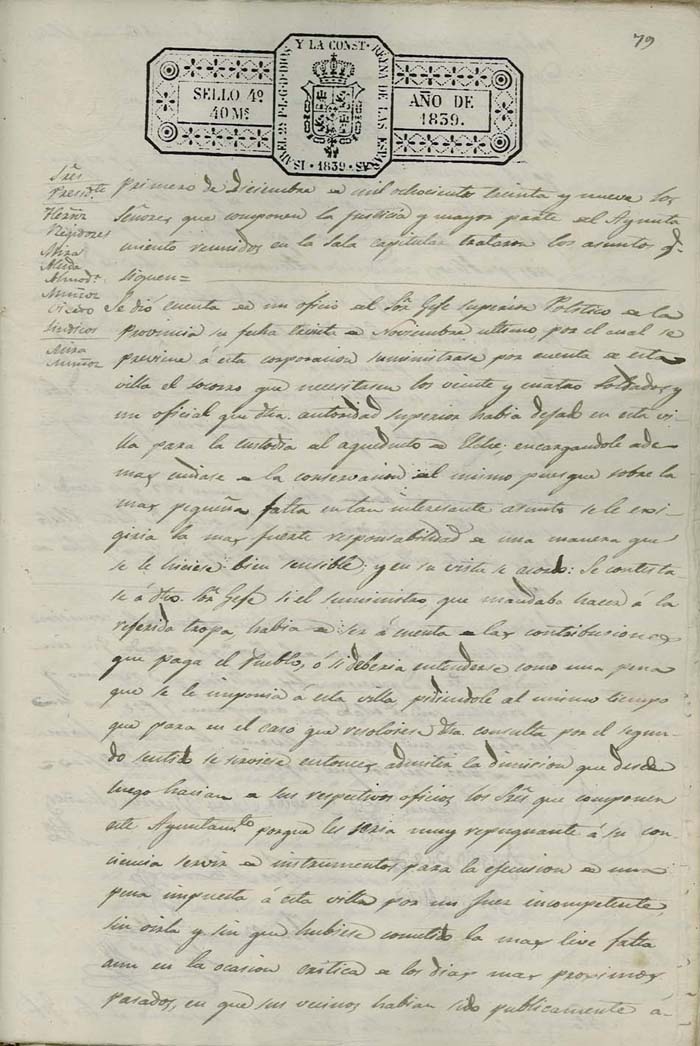 79
ISABEL 2ª P.L.G.D.DIOS Y LA CONST. REYNA DE LAS ESPAÑAS
SELLO 4º
40 Mˢ
AÑO DE
1839.
· 1839 ·
Sʳᵉˢ
Presidᵗᵉ
Regidores
Mira
Almodʳ
Muñoz
Sindicos
Mira
Muñoz
primero de Diciembre de mil ochocientos treinta y nueve los
Señores que componen la justicia y mayor parte del Ayunta
miento reunidos en la sala capitular trataron los asuntos qᵉ
siguen=
Se dió cuenta de un oficio del Sʳ Gefe superior Politico de la
Provincia su fecha treinta de Noviembre ultimo por el cual se
previene á esta corporacion suministrase por cuenta de esta
villa el socorro que necesitasen los veinte y cuatro soldados y
un oficial que dha. autoridad superior habia dejado en esta vi-
lla para la custodia del aqueducto de Elche; encargandole ade-
mas cuidase de la conservacion del mismo pues que sobre la
mas pequeña falta en tan interesante asunto se le exi-
giria la mas fuerte responsabilidad de una manera que
se le hiciese bien sensible; y en su vista se acordó: Se contesta-
se á dho. Sʳ Gefe si el suministro que mandaba hacer á la
referida tropa, habia de ser á cuenta de las contribuciones
que paga el Pueblo, ó si deberia entenderse como una pena
que se le imponia á esta villa pidiendole al mismo tiempo
que para en el caso que resolviese dha. consulta por el segun-
do sentido se sirviese entonces admitir la dimision que desde
luego hacian de sus respectivos oficios los Sʳᵉˢ que componen
este Ayuntamᵗᵒ porque les seria muy repugnante á su con-
ciencia servir de instrumentos para la ejecucion de una
pena impuesta á esta villa por un juez incompetente,
sin oirla y sin que hubiese cometido la mas leve falta
aun en la ocasion critica de los dias mas proximos
pasados, en que sus vecinos habian sido publicamente á-